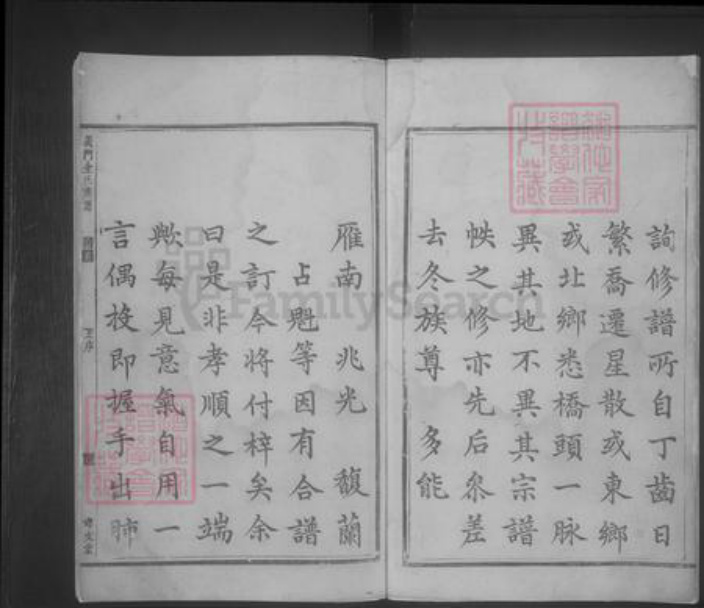 詢修譜所自丁齒日
繁喬遷星散或東鄉
或北鄉悉橋頭一脉
異其地不異其宗譜
帙之修亦先后叅差
去冬族尊　多能
雁南　兆光　馥蘭
占魁等因有合譜
之訂今將付梓矣余
曰是非孝順之一端
歟每見意氣自用一
言偶投即握手出肺
FamilySearch